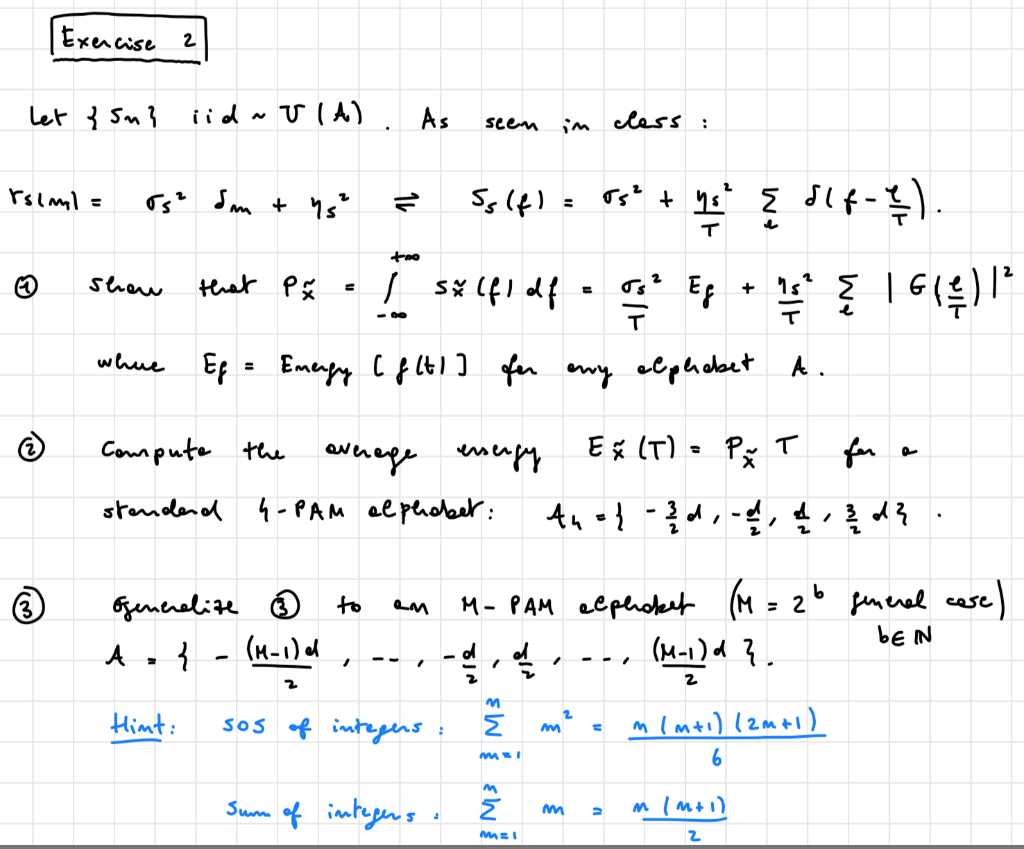 Exercise 2
Let { Sn } iid ~ U(A). As seen in class :
rs(m) = σs² δm + ηs² ⇌ Ss(f) = σs² + ηs²/T Σ_ℓ δ(f - ℓ/T).
① show that Px̃ = ∫_{-∞}^{+∞} Sx̃(f) df = σs²/T Eg + ηs²/T Σ_ℓ |G(ℓ/T)|²
where Eg = Energy [g(t)] for any alphabet A.
② Compute the average energy Ex̃(T) = Px̃ T for a
standard 4-PAM alphabet: A4 = { -3/2 d, -d/2, d/2, 3/2 d } .
③ generalize ③ to an M-PAM alphabet (M = 2^b general case)
b ∈ ℕ
A = { - (M-1)d/2 , --, -d/2, d/2, ---, (M-1)d/2 }.
Hint: SOS of integers : Σ_{m=1}^{n} m² = n(n+1)(2n+1)/6
Sum of integers : Σ_{m=1}^{n} m = n(n+1)/2